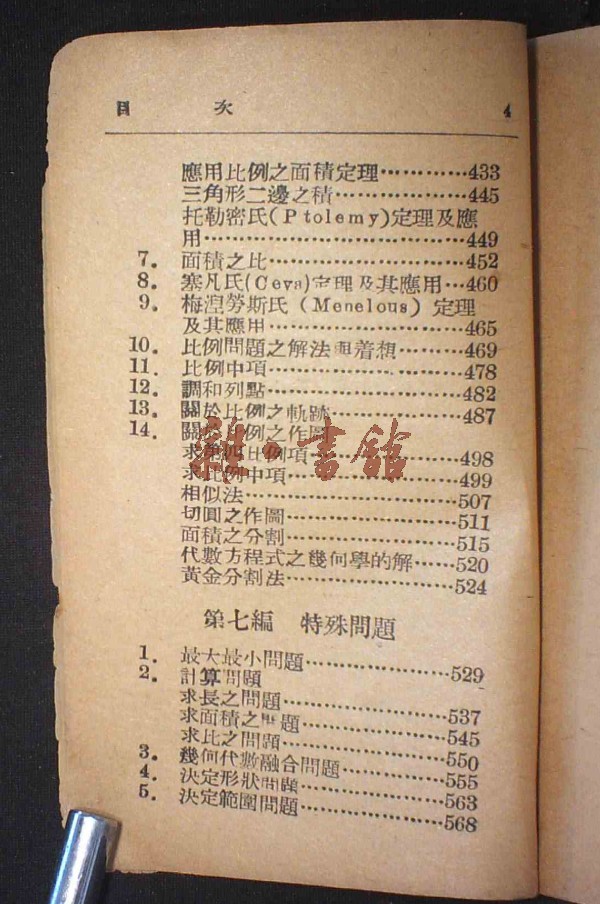 目 次 4
應用比例之面積定理…………433
三角形二邊之積………………445
托勒密氏(Ptolemy)定理及應
用………………………………449
7. 面積之比………………………452
8. 塞凡氏(Ceva)定理及其應用…460
9. 梅涅勞斯氏(Menelous)定理
及其應用………………………465
10. 比例問題之解法與着想………469
11. 比例中項………………………478
12. 調和列點………………………482
13. 關於比例之軌跡………………487
14. 關於比例之作圖
求第四比例項…………………498
求比例中項……………………499
相似法…………………………507
切圓之作圖……………………511
面積之分割……………………515
代數方程式之幾何學的解……520
黃金分割法……………………524
第七編 特殊問題
1. 最大最小問題…………………529
2. 計算問題
求長之問題……………………537
求面積之問題…………………545
求比之問題……………………550
3. 幾何代數融合問題……………555
4. 決定形狀問題…………………563
5. 決定範圍問題…………………568
書館